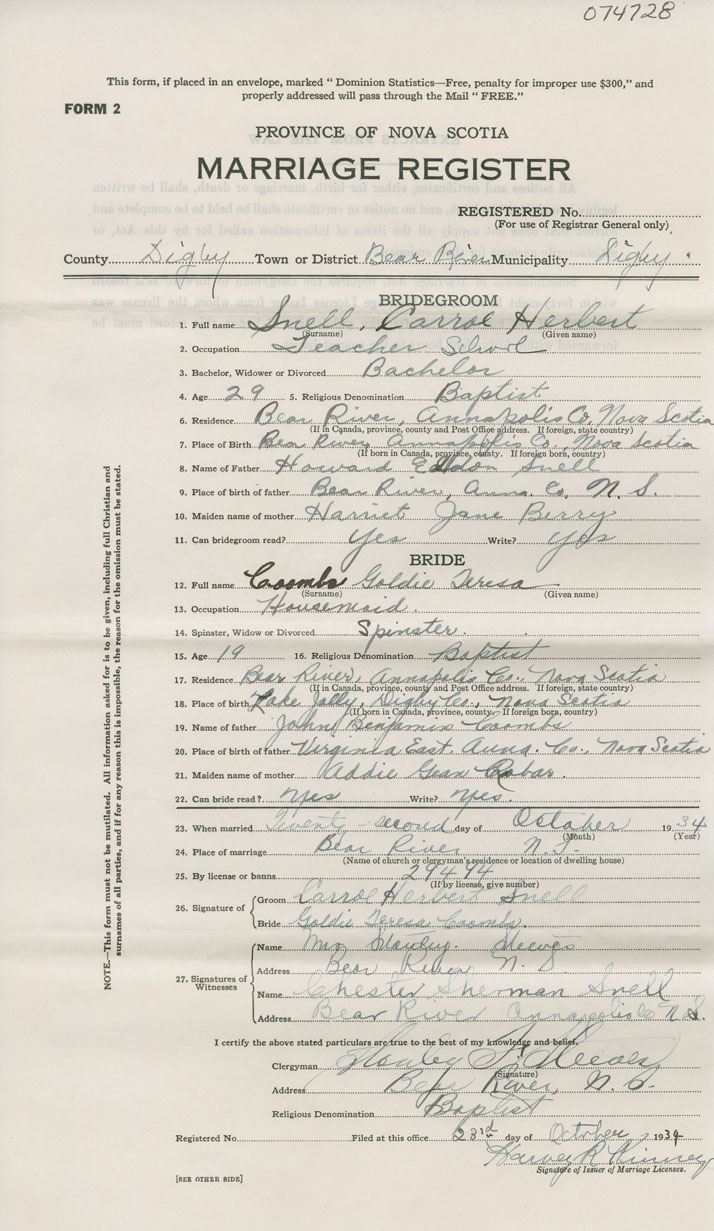 074728
This form, if placed in an envelope, marked " Dominion Statistics—Free, penalty for improper use $300," and
properly addressed will pass through the Mail " FREE."
FORM 2
PROVINCE OF NOVA SCOTIA
MARRIAGE REGISTER
REGISTERED No.
(For use of Registrar General only)
County Digby Town or District Bear River Municipality Digby
BRIDEGROOM
1. Full name Snell, Carrol Herbert
(Surname) (Given name)
2. Occupation Teacher School
3. Bachelor, Widower or Divorced Bachelor
4. Age 29 5. Religious Denomination Baptist
6. Residence Bear River, Annapolis Co, Nova Scotia
(If in Canada, province, county and Post Office address. If foreign, state country)
7. Place of Birth Bear River, Annapolis Co., Nova Scotia
(If born in Canada, province, county. If foreign born, country)
8. Name of Father Howard Snell
9. Place of birth of father Bear River, Anna. Co, N. S.
10. Maiden name of mother Harriet Jane Berry
11. Can bridegroom read? Yes Write? Yes
BRIDE
12. Full name Coombs Goldie Teresa
(Surname) (Given name)
13. Occupation Housemaid.
14. Spinster, Widow or Divorced Spinster.
15. Age 19 16. Religious Denomination Baptist
17. Residence Bear River, Annapolis Co., Nova Scotia
(If in Canada, province, county and Post Office address. If foreign, state country)
18. Place of birth Lake Jolly, Digby Co., Nova Scotia
(If born in Canada, province, county. If foreign born, country)
19. Name of father John Benjamin Coombs
20. Place of birth of father Virginia East Anna. Co., Nova Scotia
21. Maiden name of mother Addie
22. Can bride read? Yes Write? Yes.
23. When married Twenty-second day of October 1934
(Month) (Year)
24. Place of marriage Bear River N. S.
(Name of church or clergyman's residence or location of dwelling house)
25. By license or banns 29494
(If by license, give number)
26. Signature of Groom Carrol Herbert Snell
Bride Goldie Teresa Coombs.
27. Signatures of Witnesses
Name Mrs
Address Bear River N. S.
Name Chester Sherman Snell
Address Bear River Annapolis Co N.S.
I certify the above stated particulars are true to the best of my knowledge and belief.
Clergyman
(Signature)
Address Bear River, N. S.
Religious Denomination Baptist
Registered No. Filed at this office 23rd day of October, 1934
Harvey R Kinney
Signature of Issuer of Marriage Licenses.
[SEE OTHER SIDE]
NOTE.—This form must not be mutilated. All information asked for is to be given, including full Christian and
surnames of all parties, and if for any reason this is impossible, the reason for the omission must be stated.